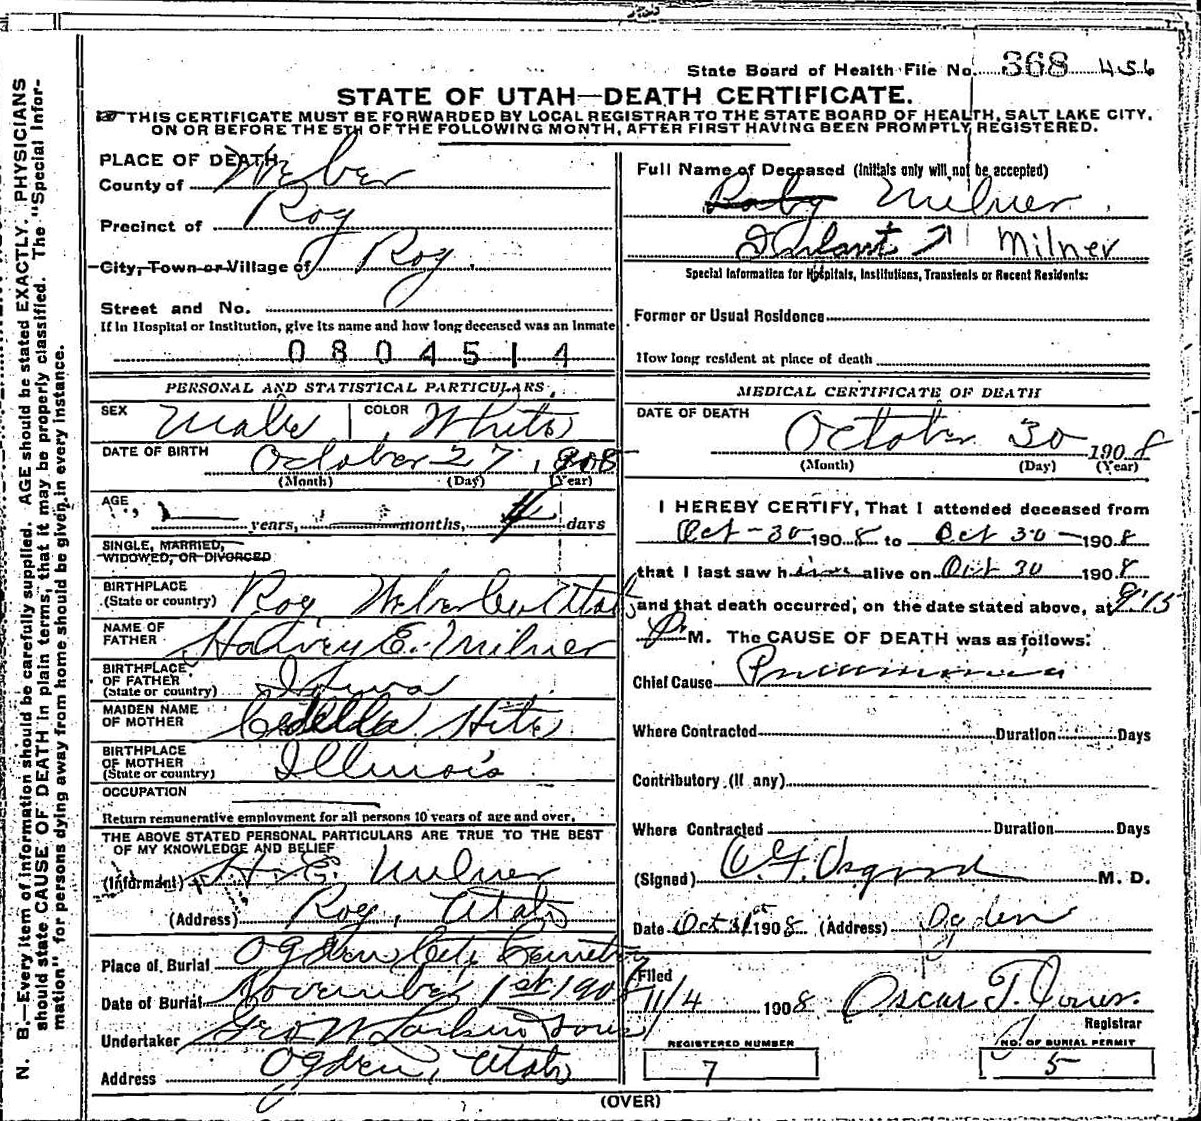 State Board of Health File No. 368 456
STATE OF UTAH—DEATH CERTIFICATE.
THIS CERTIFICATE MUST BE FORWARDED BY LOCAL REGISTRAR TO THE STATE BOARD OF HEALTH, SALT LAKE CITY,
ON OR BEFORE THE 5TH OF THE FOLLOWING MONTH, AFTER FIRST HAVING BEEN PROMPTLY REGISTERED.
N. B.—Every item of information should be carefully supplied. AGE should be stated EXACTLY. PHYSICIANS
should state CAUSE OF DEATH in plain terms, that it may be properly classified. The "Special Infor-
mation" for persons dying away from home should be given in every instance.
PLACE OF DEATH
County of Weber
Precinct of Roy
City, Town or Village of Roy
Street and No.
If in Hospital or Institution, give its name and how long deceased was an inmate
0804514
PERSONAL AND STATISTICAL PARTICULARS.
SEX Male COLOR White
DATE OF BIRTH October 27, 1908
(Month) (Day) (Year)
AGE
years, months, 4 days
SINGLE, MARRIED,
WIDOWED, OR DIVORCED
BIRTHPLACE
(State or country) Roy Weber Co Utah
NAME OF
FATHER Harvey E. Milner
BIRTHPLACE
OF FATHER
(State or country) Iowa
MAIDEN NAME
OF MOTHER Hite
BIRTHPLACE
OF MOTHER
(State or country) Illinois
OCCUPATION
Return remunerative employment for all persons 10 years of age and over.
THE ABOVE STATED PERSONAL PARTICULARS ARE TRUE TO THE BEST
OF MY KNOWLEDGE AND BELIEF
(Informant) H. E. Milner
(Address) Roy, Utah
Place of Burial Ogden City Cemetery
Date of Burial November 1st 1908
Undertaker Geo W Larkin Sons
Address Ogden, Utah
Full Name of Deceased (Initials only will not be accepted)
Baby Milner
Infant Milner
Special Information for Hospitals, Institutions, Transients or Recent Residents:
Former or Usual Residence
How long resident at place of death
MEDICAL CERTIFICATE OF DEATH
DATE OF DEATH
October 30 1908
(Month) (Day) (Year)
I HEREBY CERTIFY, That I attended deceased from
Oct - 30 1908 to Oct 30 - 1908
that I last saw him alive on Oct 30 1908
and that death occurred, on the date stated above, at 9:15
P M. The CAUSE OF DEATH was as follows:
Chief Cause Pneumonia
Where Contracted Duration Days
Contributory (If any)
Where Contracted Duration Days
(Signed) Osgood M. D.
Date Oct 31st 1908 (Address) Ogden
Filed
11/4 1908 Oscar T. Jones.
Registrar
REGISTERED NUMBER
7
NO. OF BURIAL PERMIT
5
(OVER)